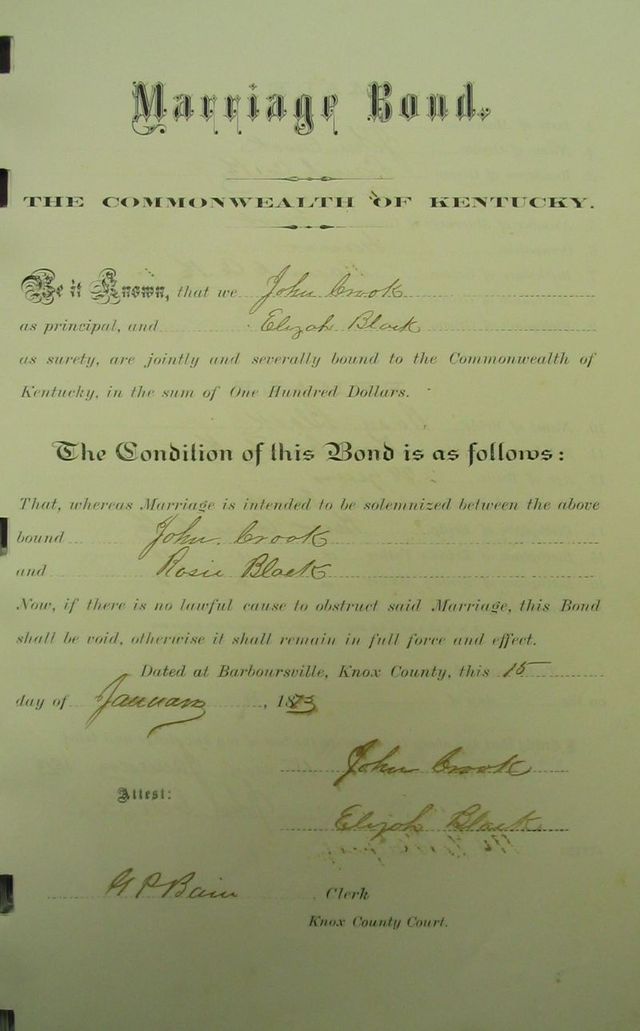 Marriage Bond.
THE COMMONWEALTH OF KENTUCKY.
Be it Known, that we John Crook
as principal, and Elizah Black
as surety, are jointly and severally bound to the Commonwealth of
Kentucky, in the sum of One Hundred Dollars.
The Condition of this Bond is as follows:
That, whereas Marriage is intended to be solemnized between the above
bound John Crook
and Rosie Black
Now, if there is no lawful cause to obstruct said Marriage, this Bond
shall be void, otherwise it shall remain in full force and effect.
Dated at Barboursville, Knox County, this 15
day of January, 18
John Crook
Attest:
Elijah Black
Bain Clerk
Knox County Court.